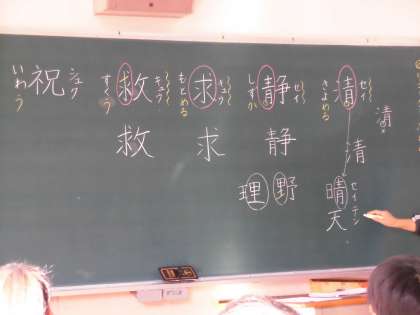 清
セイ
きよめる
清
青
晴天
セイテン
静
セイ
しずか
静
野
理
求
キュウ
もとめる
求
救
キュウ
すくう
救
祝
シュク
いわう